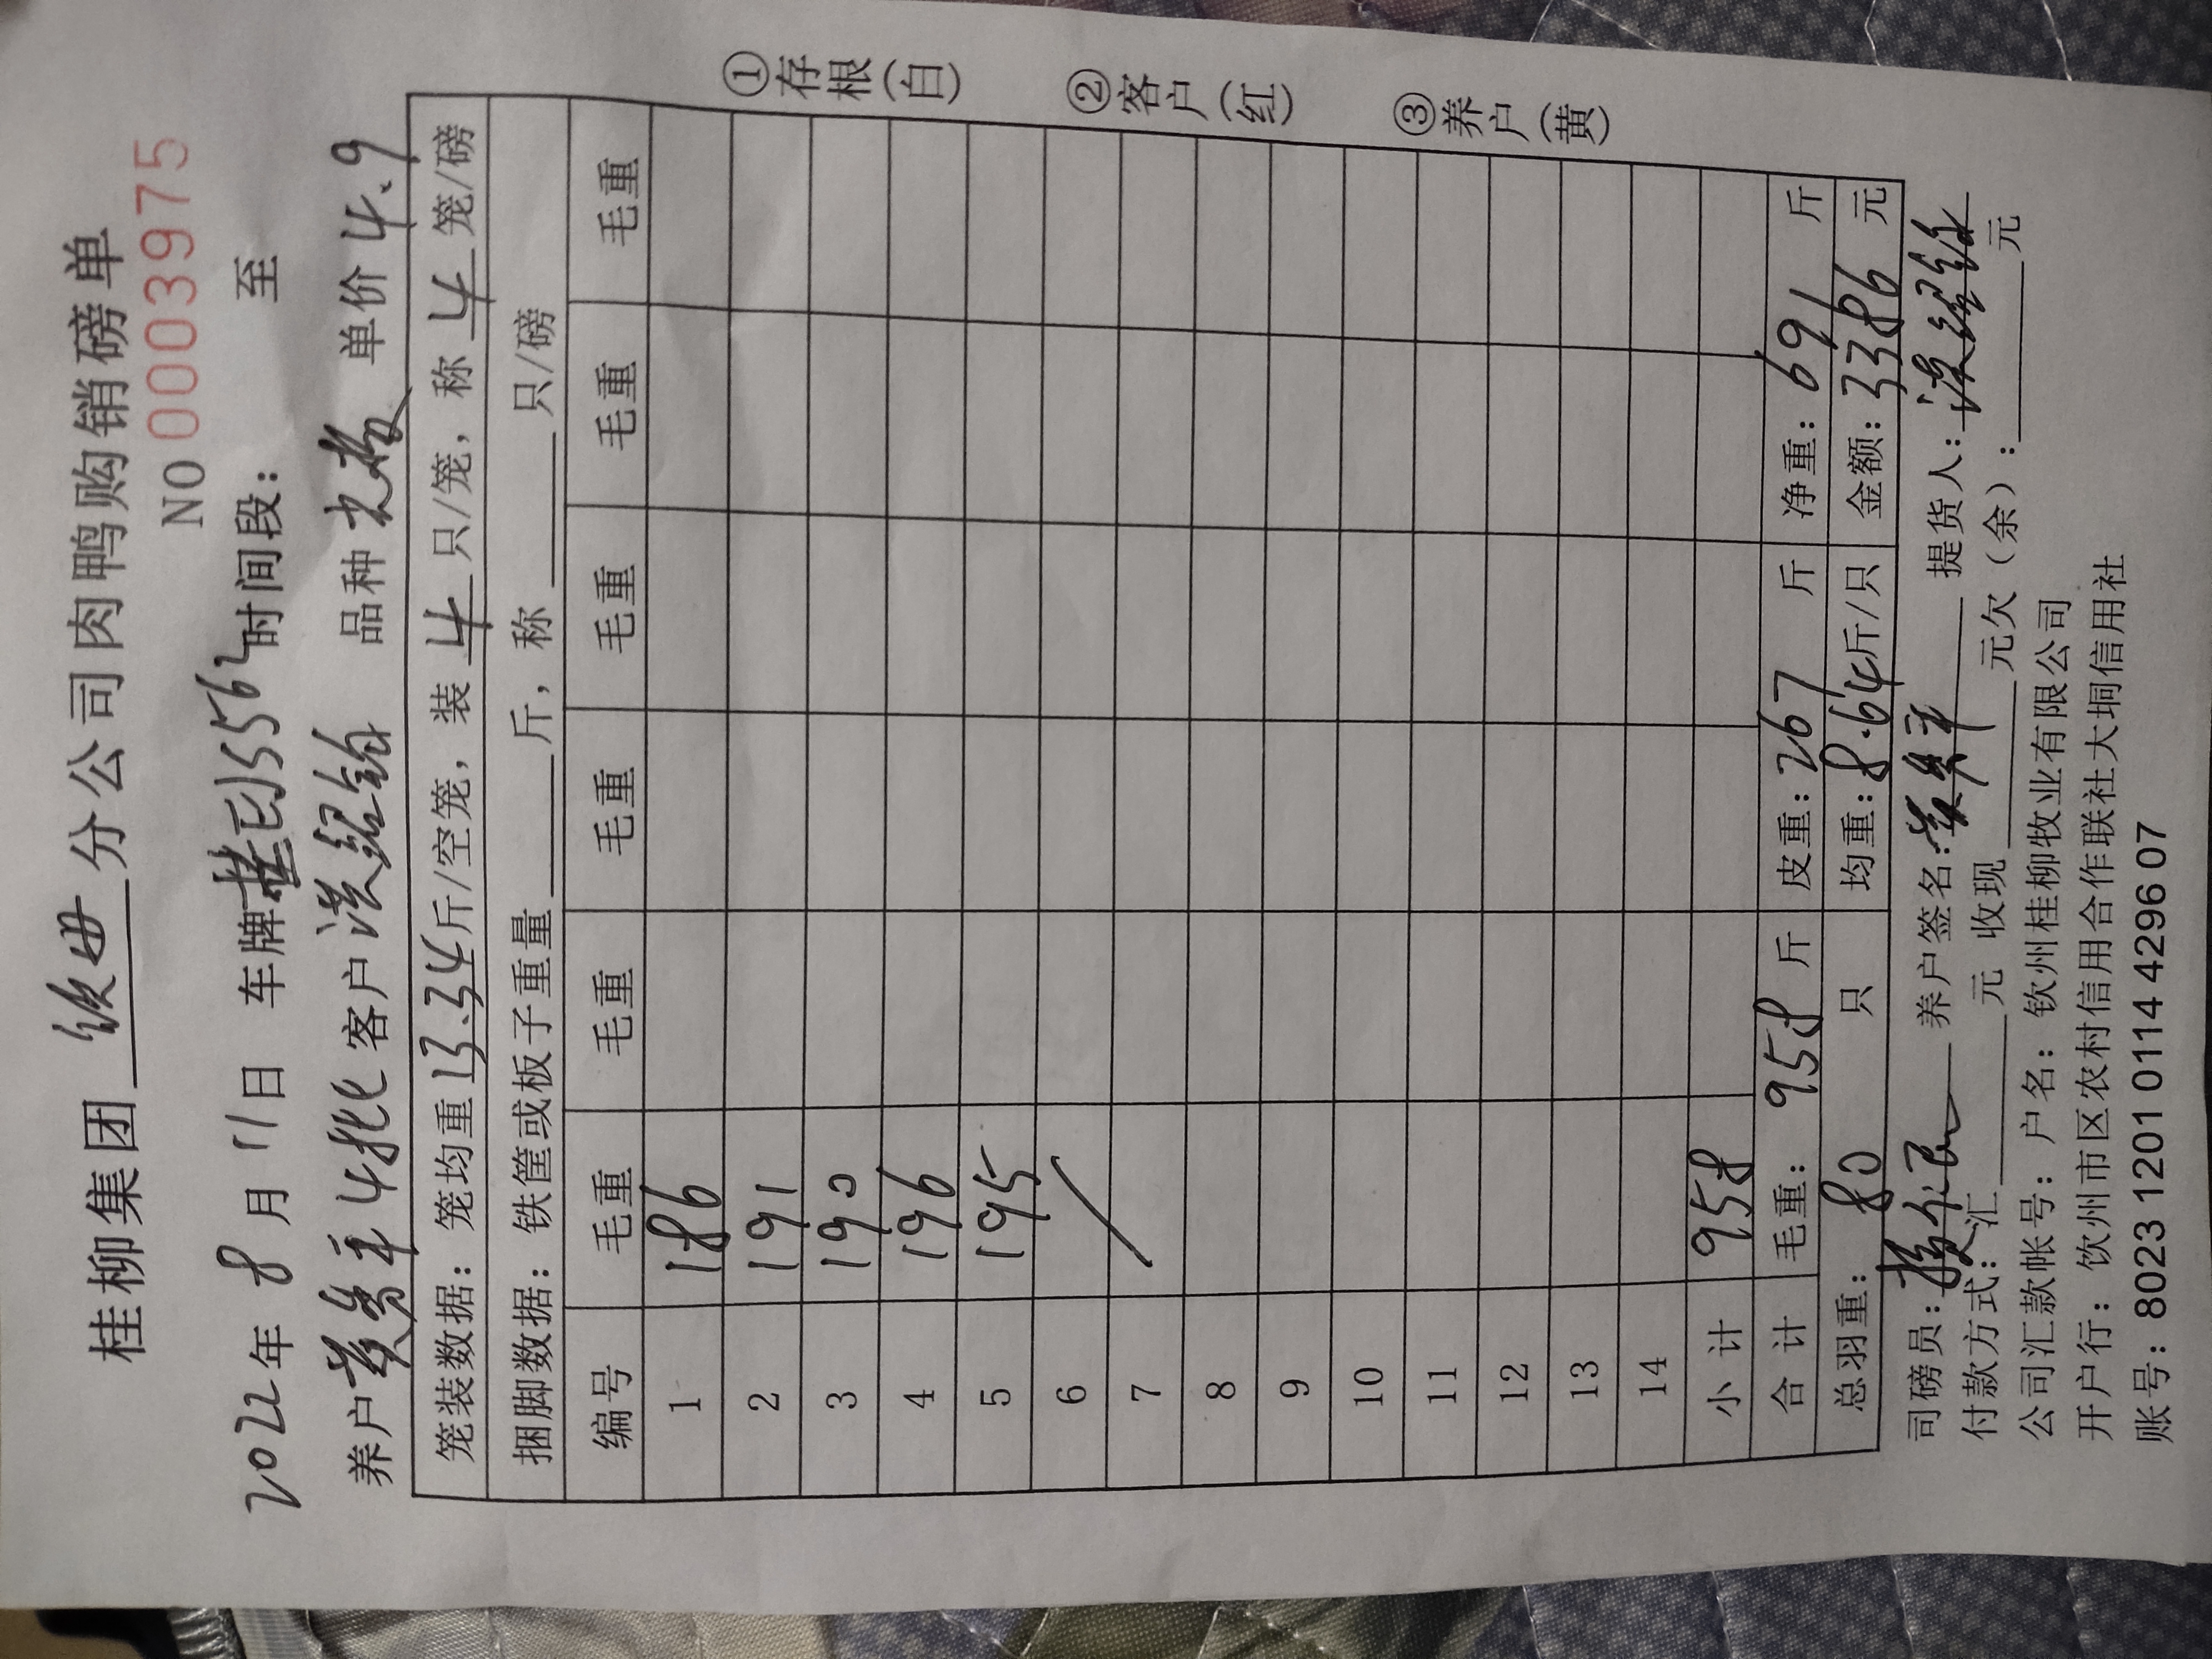 桂柳集团 钦州 分公司肉鸭购销磅单
NO 0003975
2022年 8月 11日 车牌桂 时间段： 至
养户 4批 客户 品种 大板 单价 4.9
笼装数据：笼均重 13.34 斤/空笼，装 4 只/笼，称 4 笼/磅
捆脚数据：铁筐或板子重量 斤，称 只/磅
编号 毛重 毛重 毛重 毛重 毛重 毛重
1 186
2 191
3 190
4 196
5 195
6
7
8
9
10
11
12
13
14
小计 958
合计 毛重：958斤 皮重：267斤 净重：691斤
总羽重：80只 均重：8.64斤/只 金额：3386元
司磅员： 养户签名： 提货人：
付款方式：汇 元 收现 元欠（余）： 元
公司汇款帐号：户名：钦州桂柳牧业有限公司
开户行：钦州市区农村信用合作联社大垌信用社
账号：8023 1201 0114 4296 07
①存根(白)
②客户(红)
③养户(黄)